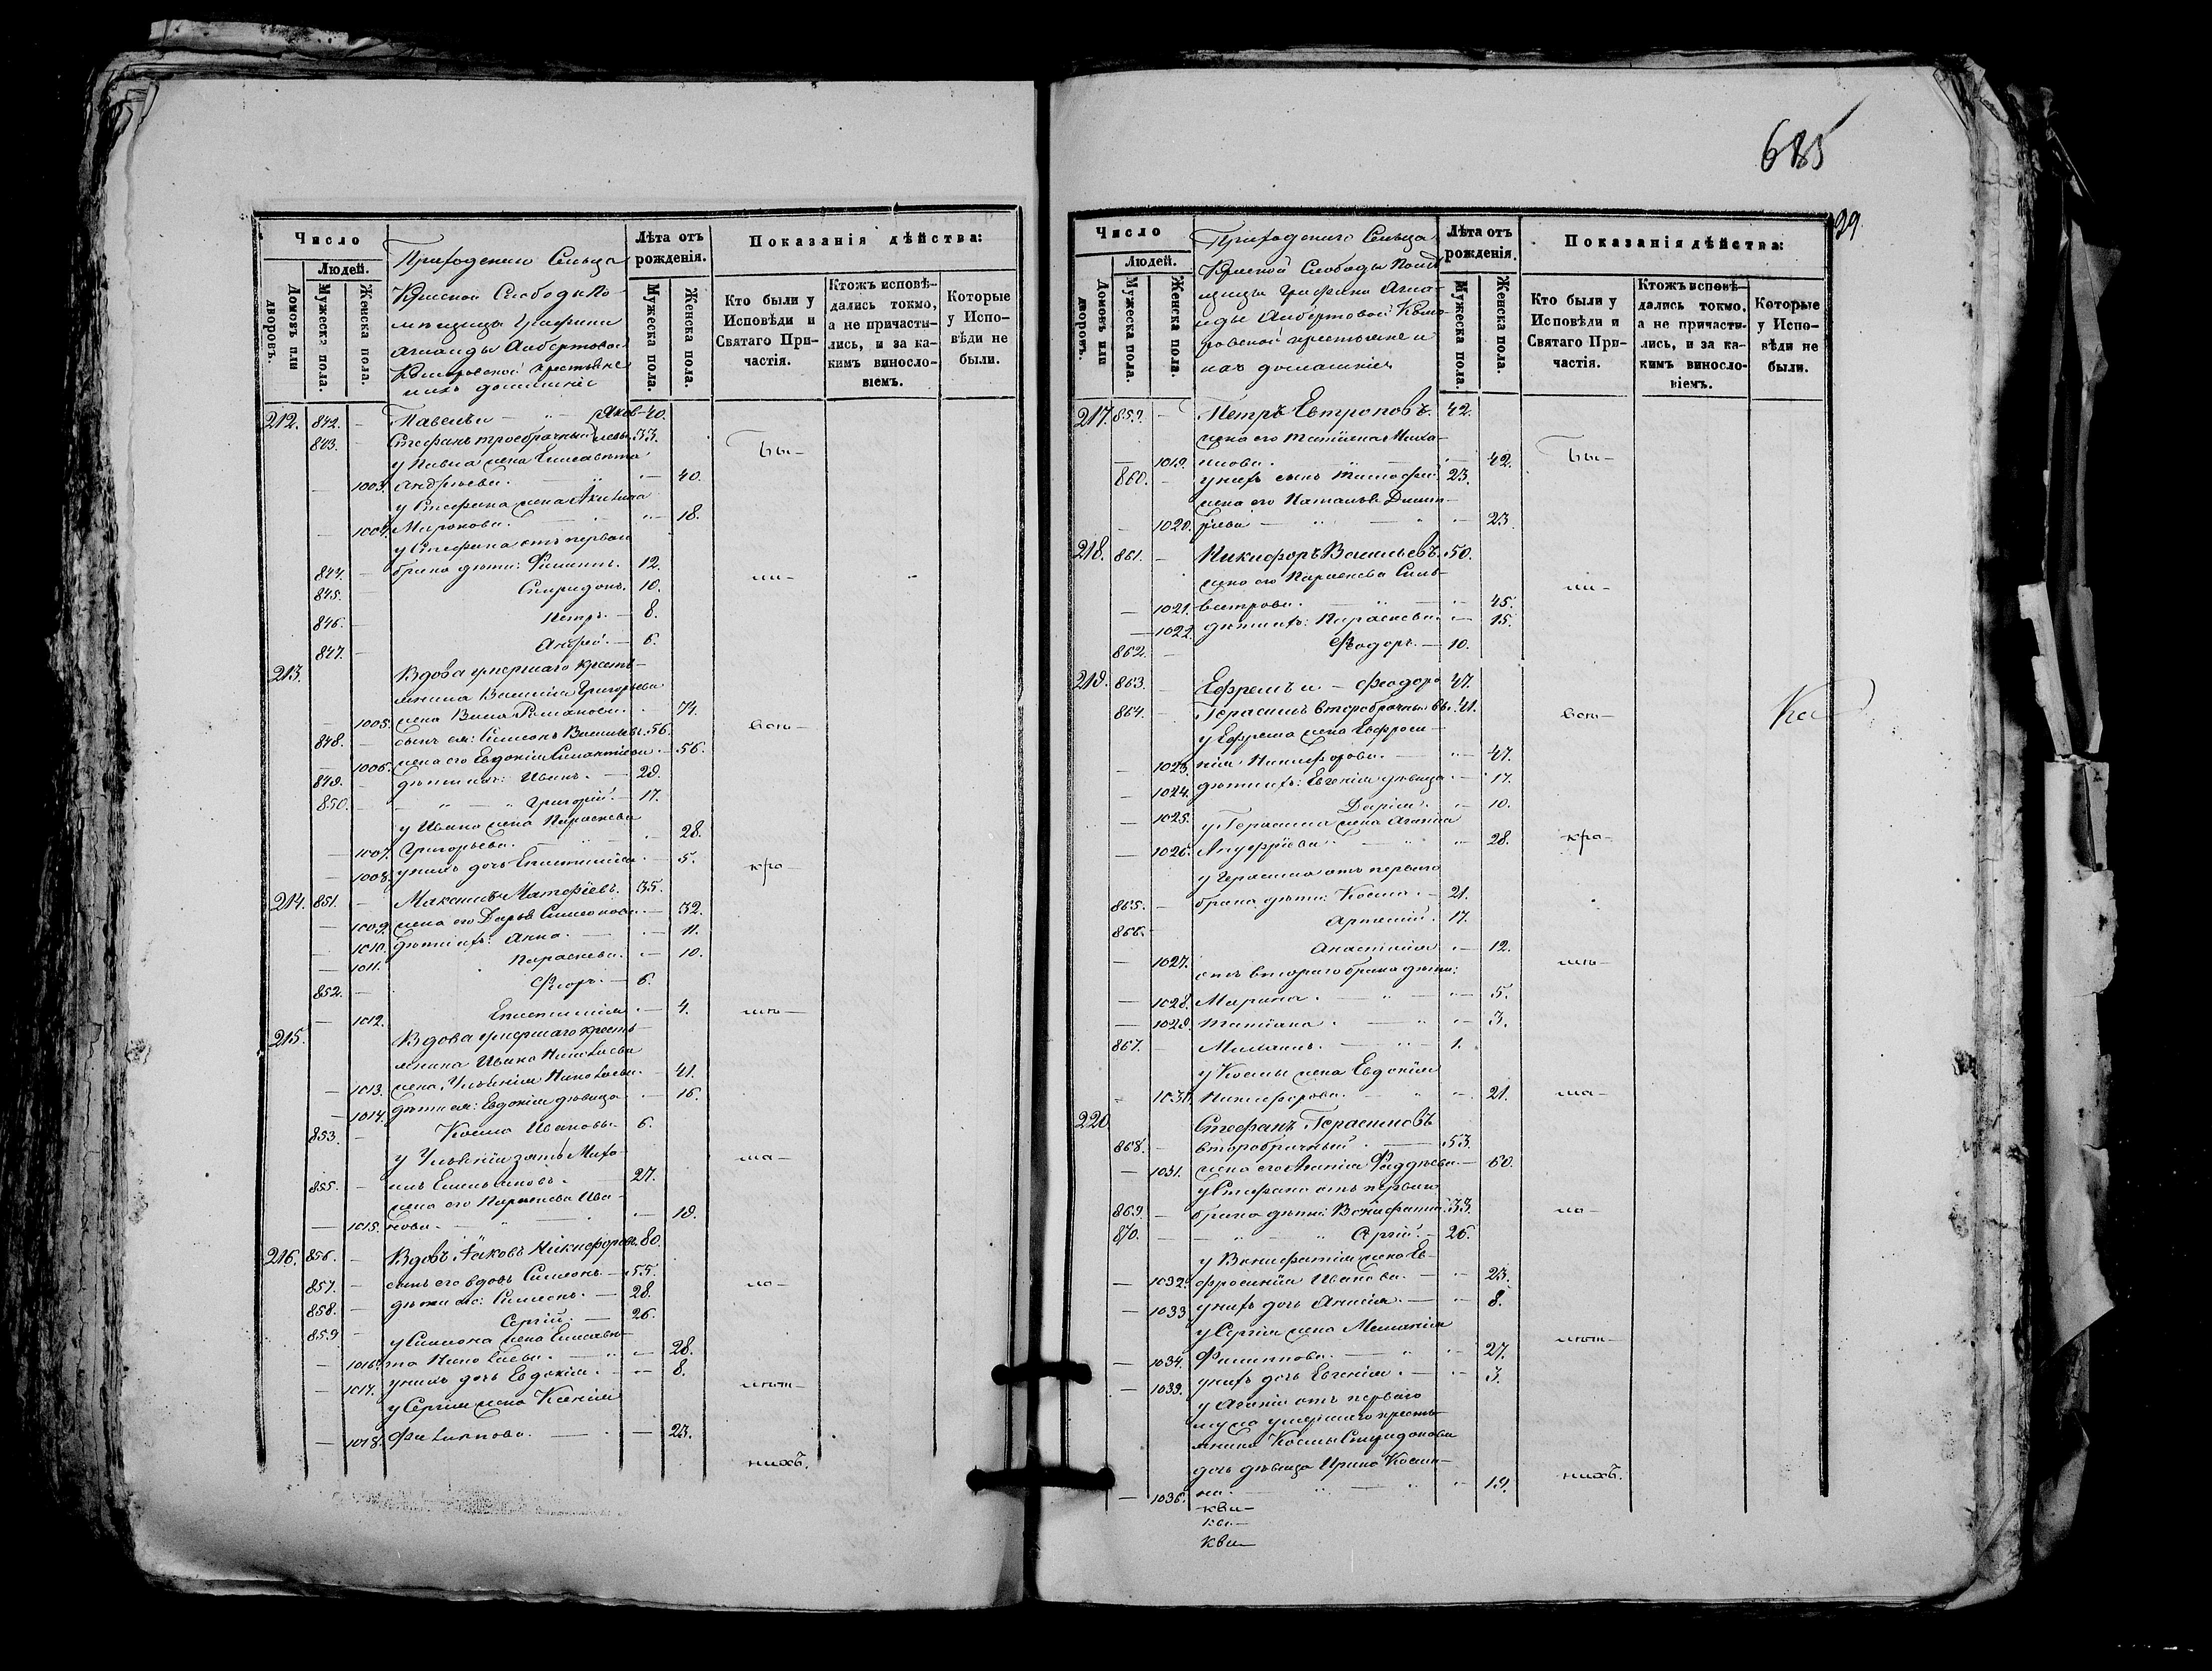 Число
Людей.
Домовъ или дворовъ.
Мужеска пола.
Женска пола.
Лѣта отъ рожденія.
Мужеска пола.
Женска пола.
Показанія дѣйства:
Кто были у Исповѣди и Святаго Причастія.
Ктожъ исповѣдались токмо, а не причастились, и за какимъ винословіемъ.
Которые у Исповѣди не были.
212. 842. — Павелъ и — Яков- 40.
843. Стефанъ троебрачный левы 33.
у Павла жена Елисавета
1003. Андреева. — 40.
у Стефана жена Акилина
— 1004. Миронова. — 18.
у Стефана отъ перваго
844. — брака дѣти: Филиппъ. 12.
845. — Спиридонъ. 10.
846. — Петръ. — 8.
847. — Андрей. — 6.
213. Вдова умершаго кресть-
янина Василія Григорьева
— 1005. жена Васса Романова. 74.
848. — сынъ ея: Симеонъ Васильевъ. 56.
— 1006. жена его Евдокія — 56.
849. — дѣти ихъ: Иванъ. — 29.
850. — Григорій. — 17.
у Ивана жена Параскева
— 1007. Григорьева. — 28.
— 1008. у нихъ дочь Епистимія — 5.
214. 851. — Максимъ Матфіевъ. 35.
— 1009. жена его Дарья Симеонова — 32.
1010. дѣти ихъ: Анна. — 11.
— 1011. Параскева. — 10.
852. — Флоръ. — 6.
— 1012. Епистимія — 4.
215. Вдова умершаго кресть-
янина Ивана Николаева
— 1013. жена Ульянія Николаева. — 41.
— 1014. дѣти ея: Евдокія дѣвица — 16.
853. — Косма Ивановъ. 6.
у Ульяніи зять Миха-
855. — илъ Емельяновъ. — 27.
жена его Параскева Ива-
— 1015. нова. — 19.
216. 856. — Вдовъ Іаковъ Никифоровъ. 80.
857. — сынъ его вдовъ Симеонъ — 55.
858. — дѣти его: Симеонъ. — 28.
859 — Сергій. — 26.
у Симеона жена Елисаве-
— 1016. та Николаева. — 28.
— 1017. у нихъ дочь Евдокія. — 8.
у Сергія жена Ксенія
— 1018. Филиппова. — 23.
Бы-
ли-
всѣ-
кро-
мѣ-
ма-
ло-
лѣт-
нихъ.
685
29
Число
Людей.
Домовъ или дворовъ.
Мужеска пола.
Женска пола.
Лѣта отъ рожденія.
Мужеска пола.
Женска пола.
Показанія дѣйства:
Кто были у Исповѣди и Святаго Причастія.
Ктожъ исповѣдались токмо, а не причастились, и за какимъ винословіемъ.
Которые у Исповѣди не были.
217. 859. — Петръ Евтроповъ. 42.
жена его Татіана Миха-
— 1019. илова. — 42.
860. — у нихъ сынъ Тимофей 23.
жена его Наталья Димит-
— 1020. ріева — 23
218. 861. — Никифоръ Васильевъ. 50.
жена его Параскева Силь-
— 1021. вестрова. — 45.
— 1022. дѣти ихъ: Параскева. — 15.
862. — Ѳеодоръ. — 10.
219. 863. — Ефремъ и — Ѳеодоро 47.
864. — Герасимъ второбрачный вы. 41.
у Ефрема жена Евфроси-
— 1023. нія Никифорова. — 47.
— 1024. дѣти ихъ: Евгенія дѣвица — 17.
— 1025. Дарія. — 10.
у Герасима жена Агапія
— 1026. Ануфріева. — 28.
у Герасима отъ перваго
865. — брака дѣти: Косма. — 21.
866. Артемій. 17.
— 1027. Анастасія — 12.
отъ втораго брака дѣти:
— 1028. Марина. — 5.
— 1029. Татіана. — 3.
867. — — 1.
у Космы жена Евдокія
1030. Никифорова. — 21.
220. Стефанъ Герасимовъ
868. — второбрачный. — 53.
— 1031. жена его Агапія Фаддѣева — 60.
у Стефана отъ перваго
869. — брака дѣти: Вонифатій. 33.
870. — Сергій. — 26.
у Вонифатія жена Ев-
— 1032. фросинія Иванова. — 23.
— 1033 у нихъ дочь Анисія. — 8.
у Сергія жена Меланія
— 1034. Филиппова. — 27.
— 1035. у нихъ дочь Евгенія. — 3.
у Агапіи отъ перваго
мужа умершаго кресть-
янина Космы Спиридонова
дочь дѣвица Ирина Косми-
— 1036. на. — 19.
Бы-
ли-
всѣ-
кро-
мѣ-
ма-
ло-
лѣт-
нихъ.